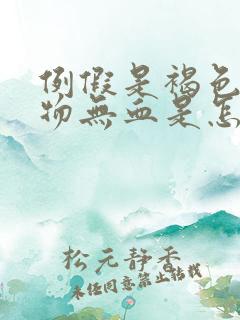 例假是褐色
物無血是怎
松元静香
未经同意禁止转载